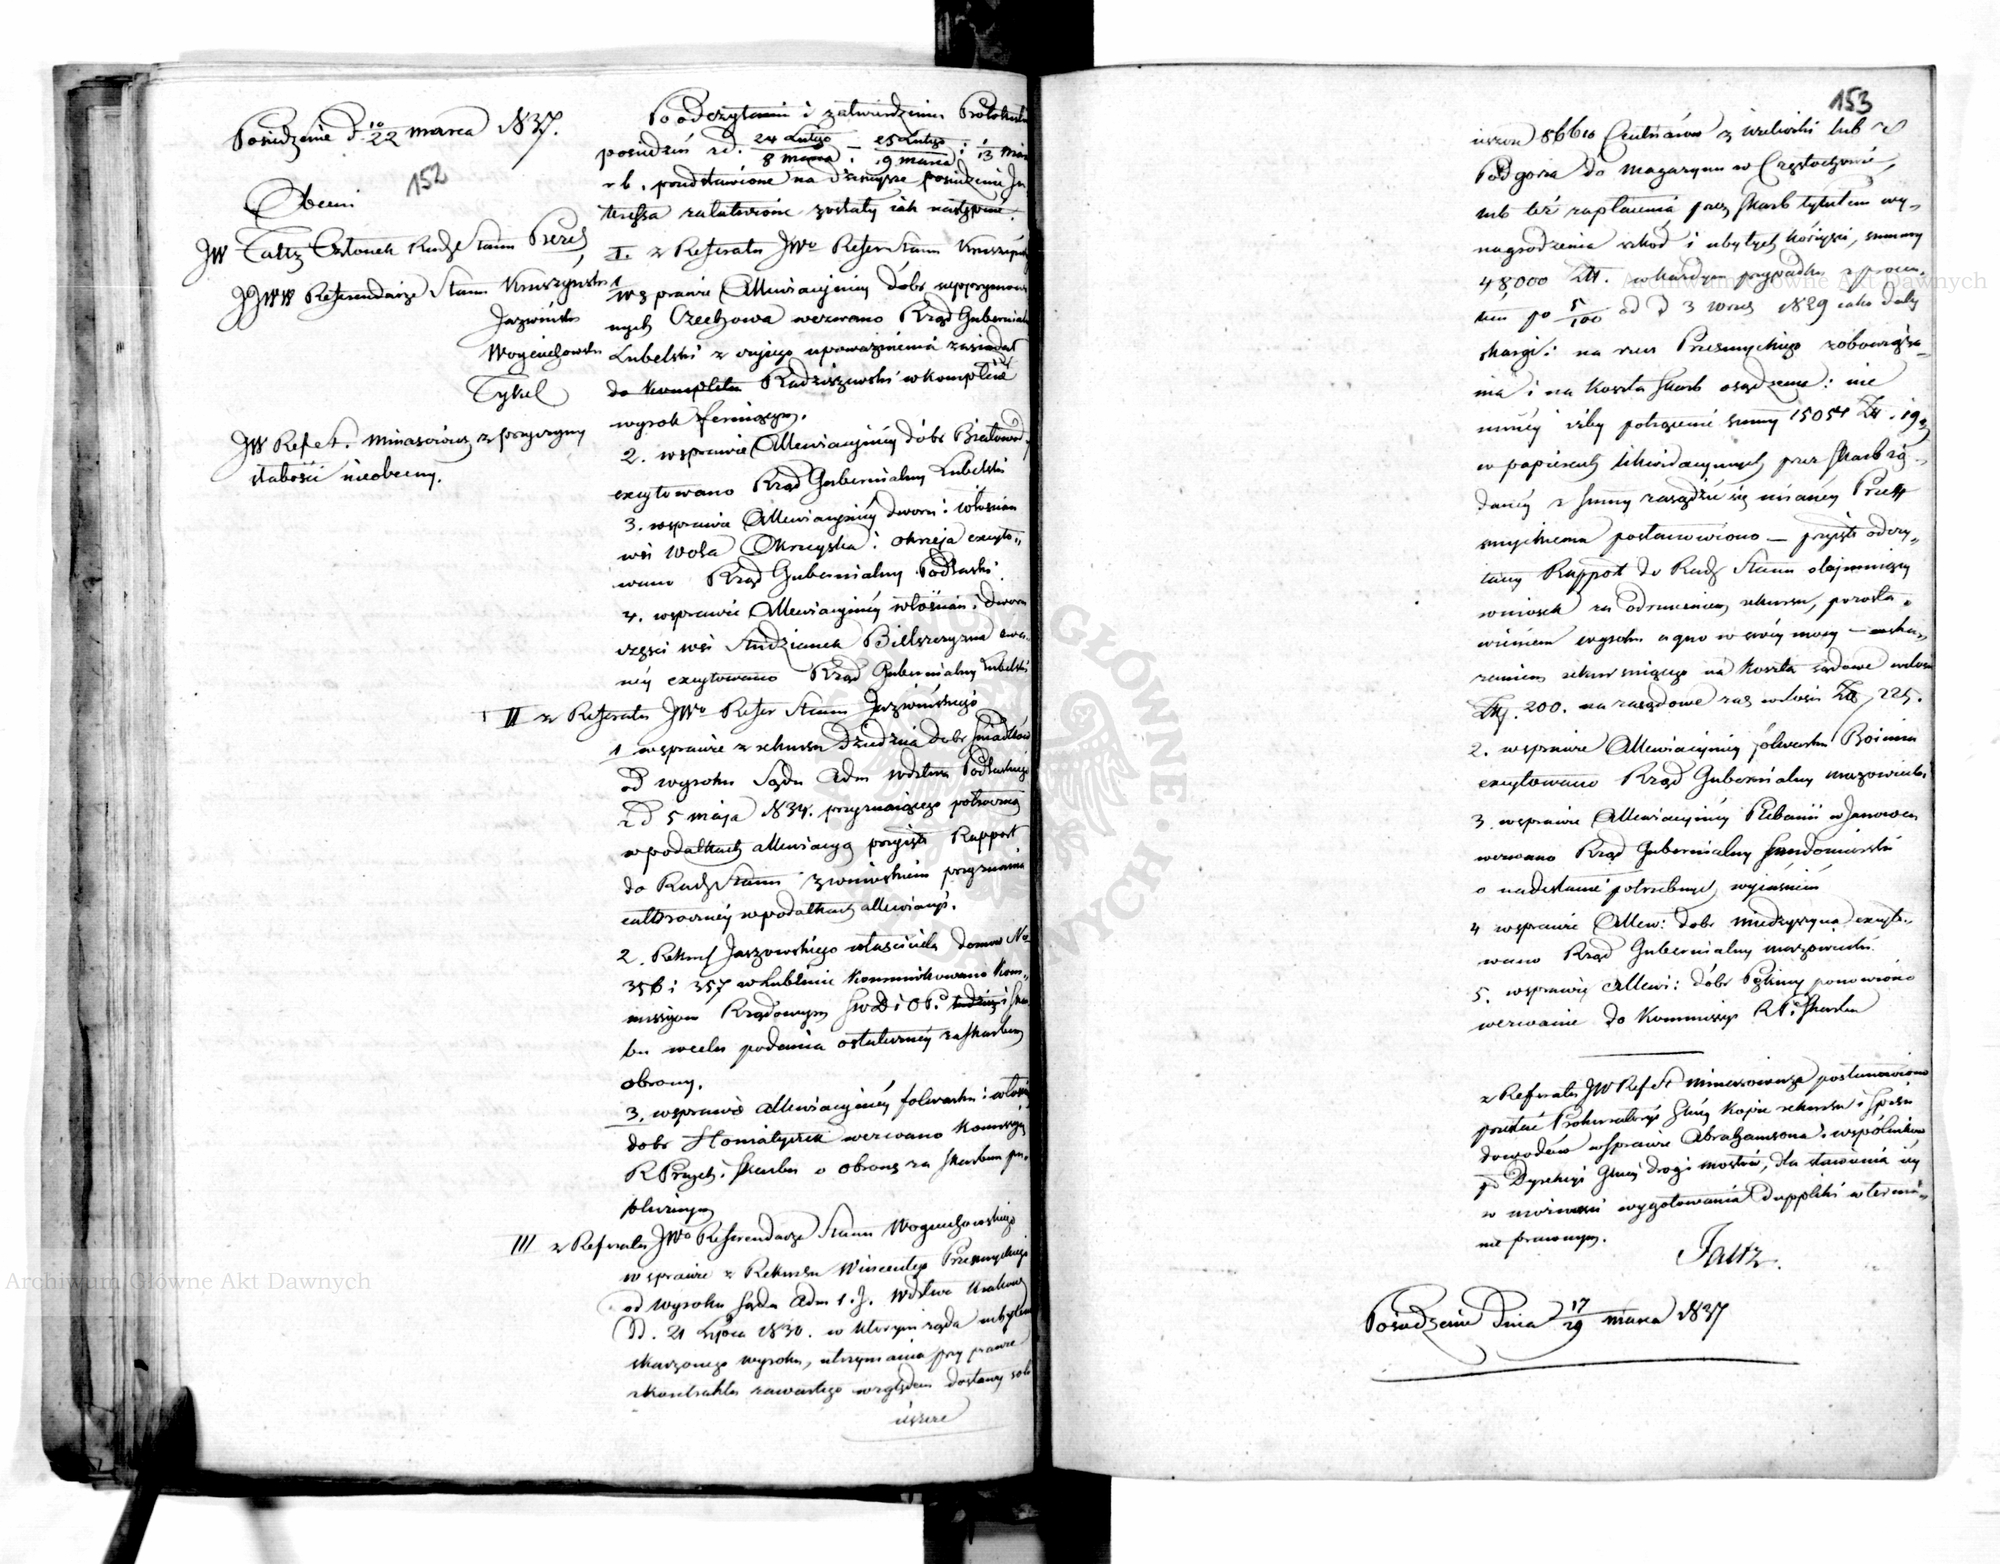 152
Posiedzenie d. 10/22 marca 1837.
Obecni
JW Faltz Członek Rady Stanu Prezes
JJWW Referendarze Stanu Kruszyński
Jaźwiński
Wojciechowski
Tykel
JW Ref. St. Minasowicz z przyczyny
słabości nieobecny.
Po odczytaniu i zatwierdzeniu Protokułu
posiedzeń z d. 24 Lutego/8 marca i 25 Lutego/9 marca i 1/13 mar
r. b. przedstawione na dzisiejsze posiedzenie In
teressa załatwione zostały jak następnie.
I. z Referatu JWo Refer Stanu Kruszyńsk
1 W sprawie Allewiacyjnéy dóbr supprymowa
nych Czechowa wezwano Rząd Gubernialn
Lubelski z czyjego upoważnienia zasiadał
do kompletu Radziszewski w komplecie
wyrok feruiącym.
2. w sprawie Allewiacyjnéy dóbr Białowod
excytowano Rząd Gubernialny Lubelski
3. w sprawie Allewiacyjnéy dworu i włościan
wsi Wola Okrzeyska i Okrzeja excyto„
wano Rząd Gubernialny Podlaski.
4. w sprawie Allewiacyjnéy włościan i dworu
części wsi Studzianek Bielszczyzna zwa„
néy excytowano Rząd Gubernialny Lubelski
II z Referatu JWo Refer Stanu Jaźwińskiego
1 w sprawie z rekursu Dziedzica dóbr Śniadków
od wyroku Sądu Adm wdztwa Podlaskiego
z d 5 maja 1834. przyznaiącego półroczną
w podatkach allewiacyą przyięto Rapport
do Rady Stanu z wnioskiem przyznania
całoroczney w podatkach allewiacyi.
2. Rekurs Jaszowskiego właściciela domów No
356 i 357 w Lublinie kommunikowano Kom„
missyom Rządowym Sw D i OP. i Skar
bu wcelu podania ostateczney za Skarbem
obrony.
3. w sprawie allewiacyjnéy folwarku i włości
dóbr Honiatycze wezwano Kommissyą
R Przych: i Skarbu o obronę za Skarbem pu„
blicznym
III z Referatu JWo Referendarza Stanu Wojciechowskiego
w sprawie z Rekursu Wincentego Przesmyckiego
od wyroku Sądu Adm 1. J. Wdztwa Krakow
D. 21 Lipca 1830. w którym żąda uchylenia
skarżonego wyroku, utrzymania przy prawie
z kontraktu zawartego względem dostawy soli
iszcze
153
iszcze 8660 Centnarów z Wieliczki lub z
Podgórza do magazynu w Częstochowie,
lub też zapłacenia przez Skarb tytułem wy„
nagrodzenia szkod i ubytych korzyści, summy
48000 Złt. w każdym przypadku z procen„
tem po 5/100 od d 3 Wrześ 1829 jako daty
skargi: na rzecz Przesmyckiego zobowiąza„
nia i na koszta Skarb osądzenia: nie
mniéy iżby potrącenie summy 15054 Zł. 19 g
w papierach likwidacyinych przez Skarb żą„
danéy z summy zasądzić się mianéy Przes„
smyckiemu postanowiono — przyięto odczy„
tany Rapport do Rady Stanu obejmuiący
wniosek za odrzuceniem rekursu, pozosta„
wieniem wyroku a quo w swéy mocy — wska„
zaniem rekuruiącego na koszta sądowe w ilości
Złp. 200. na zasądowe zaś w ilości Złp 225.
2. w sprawie Allewiacyinéy folwarku Boimia
excytowano Rząd Gubernialny Mazowiecki
3. w sprawie Allewiacyinéy Plebanii w Janowcu
wezwano Rząd Gubernialny Sandomierski
o nadesłanie potrzebnych wyjaśnień
4 w sprawie Allew: dóbr Miedzyrzyna excyto„
wano Rząd Gubernialny Mazowiecki.
5. w sprawie Allewi: dóbr ponowiono
wezwanie do Kommissyi R P. i Skarbu
z Referatu JW Ref St Minasowicza postanowiono
przesłać Prokuratoryi Głnéy kopie rekursu i spisu
dowodów w sprawie Abrahamsona i wspólników
po Dyrekcyi Głnéy drogi i mostów, dla stawienia się
w możności wygotowania duppliki w termi„
nie prawnym.
Faltz.
Posiedzenie Dnia 17/29 marca 1837
Archiwum Główne Akt Dawnych
Archiwum Główne Akt Dawnych